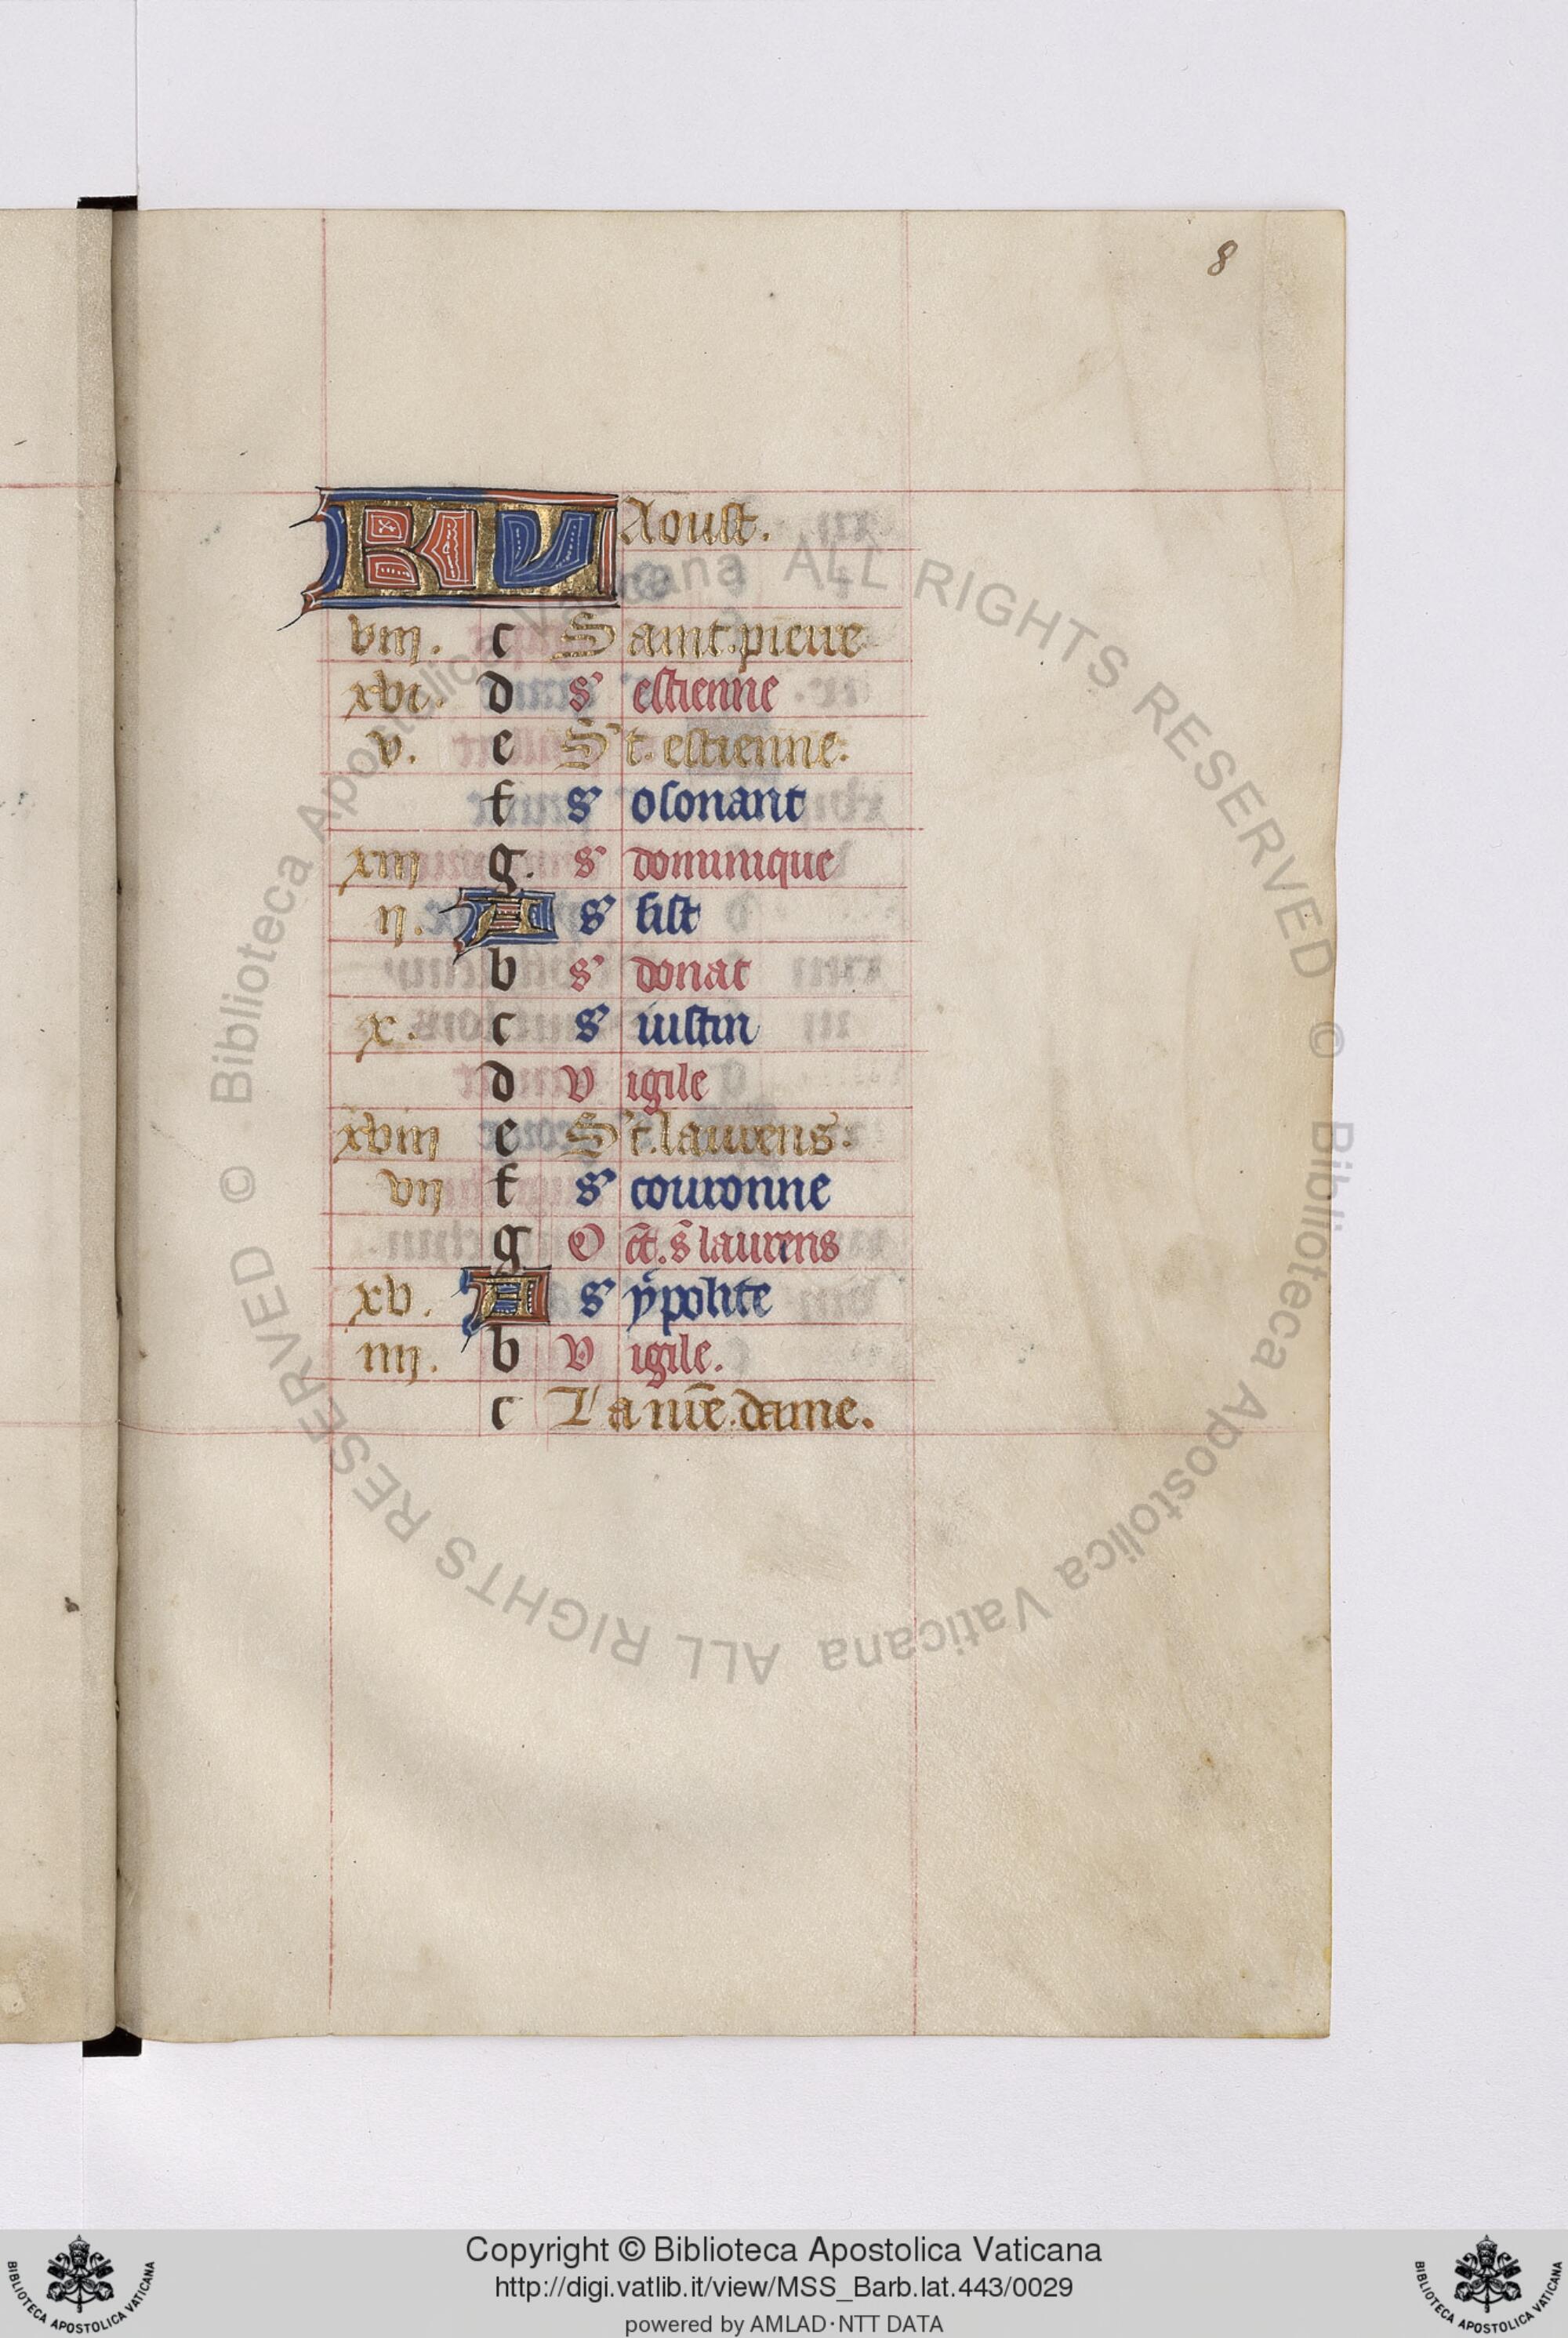 8
KL Aoust.
viii. c Saint. pierre
xvi. d s' estienne
v. e S't. estienne:
f s' osonant
xiii g. s' dominique
ii. A s' sist
b s' donat
x. c s' iustin
d vigile
xviii e S't. laurens.
vii f s' couronne
g Oct. s̄ laurens
xv. A s' ypolite
iiii. b vigile.
c La nr̄e. dame.
© Biblioteca Apostolica Vaticana ALL RIGHTS RESERVED
© Biblioteca Apostolica Vaticana ALL RIGHTS RESERVED
Copyright © Biblioteca Apostolica Vaticana
http://digi.vatlib.it/view/MSS_Barb.lat.443/0029
powered by AMLAD·NTT DATA
BIBLIOTECA APOSTOLICA VATICANA
BIBLIOTECA APOSTOLICA VATICANA